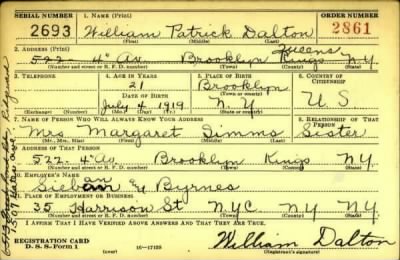 SERIAL NUMBER 1. NAME (Print) ORDER NUMBER
2693 William Patrick Dalton 2861
(First) (Middle) (Last)
2. ADDRESS (Print) Queens
522 4" Av Brooklyn Kings N.Y.
(Number and street or R. F. D. number) (Town) (County) (State)
3. TELEPHONE 4. AGE IN YEARS 5. PLACE OF BIRTH 6. COUNTRY OF CITIZENSHIP
21 Brooklyn
DATE OF BIRTH (Town or county)
July 4 1919 N.Y U S
(Exchange) (Number) (Mo.) (Day) (Yr.) (State or country)
7. NAME OF PERSON WHO WILL ALWAYS KNOW YOUR ADDRESS 8. RELATIONSHIP OF THAT PERSON
Mrs Margaret Simms Sister
(Mr., Mrs., Miss) (First) (Middle) (Last)
9. ADDRESS OF THAT PERSON
522- 4" Av Brooklyn Kings N.Y.
(Number and street or R. F. D. number) (Town) (County) (State)
10. EMPLOYER'S NAME
Byrnes
11. PLACE OF EMPLOYMENT OR BUSINESS
35 Harrison St N.Y.C. NY NY
(Number and street or R. F. D. number) (Town) (County) (State)
I AFFIRM THAT I HAVE VERIFIED ABOVE ANSWERS AND THAT THEY ARE TRUE.
REGISTRATION CARD
D. S. S. Form 1 (over) 16—17105 William Dalton
(Registrant's signature)